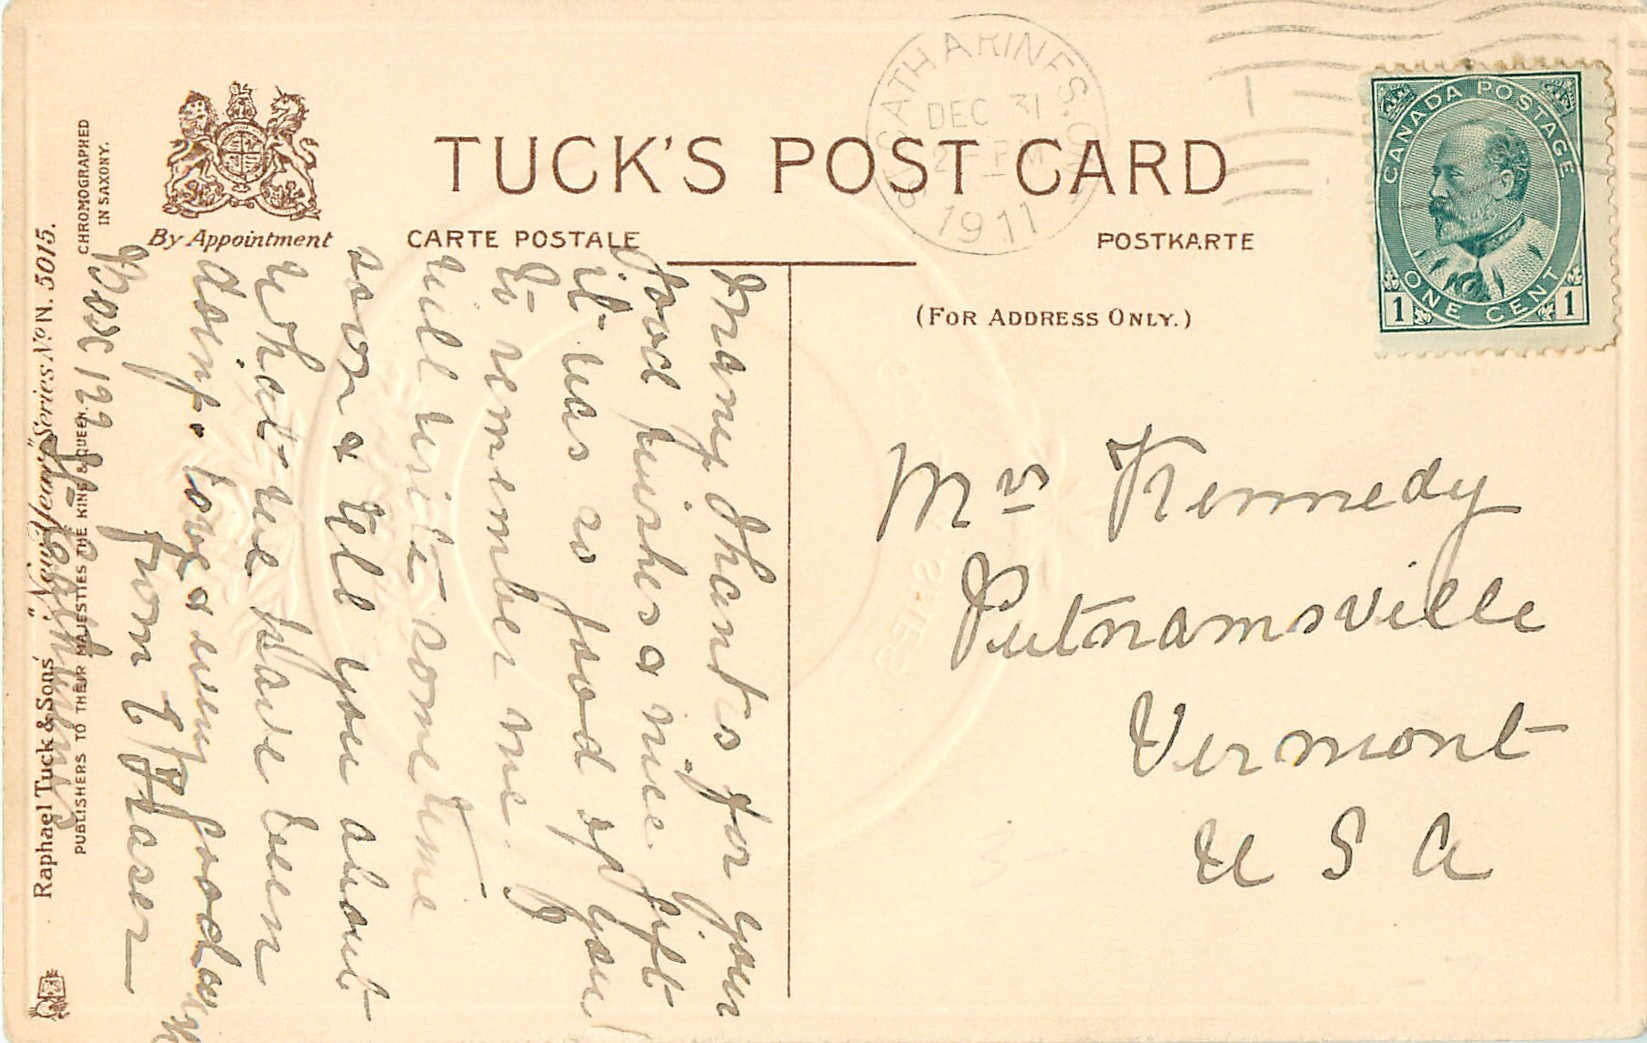 CHROMOGRAPHED
IN SAXONY.
By Appointment
TUCK'S POST CARD
CARTE POSTALE
POSTKARTE
(FOR ADDRESS ONLY.)
ST CATHARINES. ONT
DEC 31
PM
1911
CANADA POSTAGE
ONE CENT
1 1
Raphael Tuck & Sons' "New Year" Series No N. 5015.
PUBLISHERS TO THEIR MAJESTIES THE KING & QUEEN.
Many Thanks for your
Good wishes & nice gift
it was so good of you
to remember me. I
will write some time
soon & tell you about
What we have been
doing. Love & every good
from C Fraser
Box 122 St Catharines
Mrs Kennedy
Putnamsville
Vermont
U S A